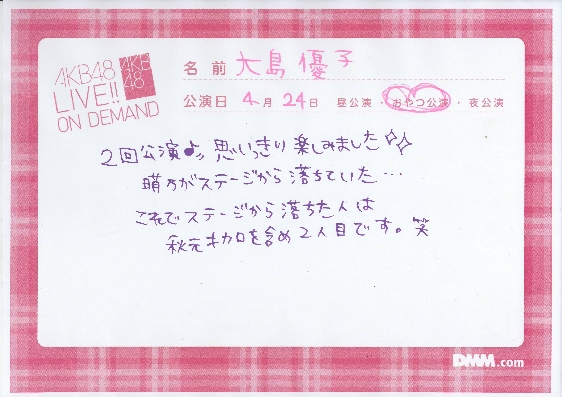 AKB48
LIVE!!
ON DEMAND
AKB
48
名前 大島優子
公演日 4月24日 昼公演・おやつ公演・夜公演
2回公演♪ 思いっきり楽しみました✨
晴乃がステージから落ちていた…
これでステージから落ちた人は
秋元才加を含め2人目です。笑
DMM.com